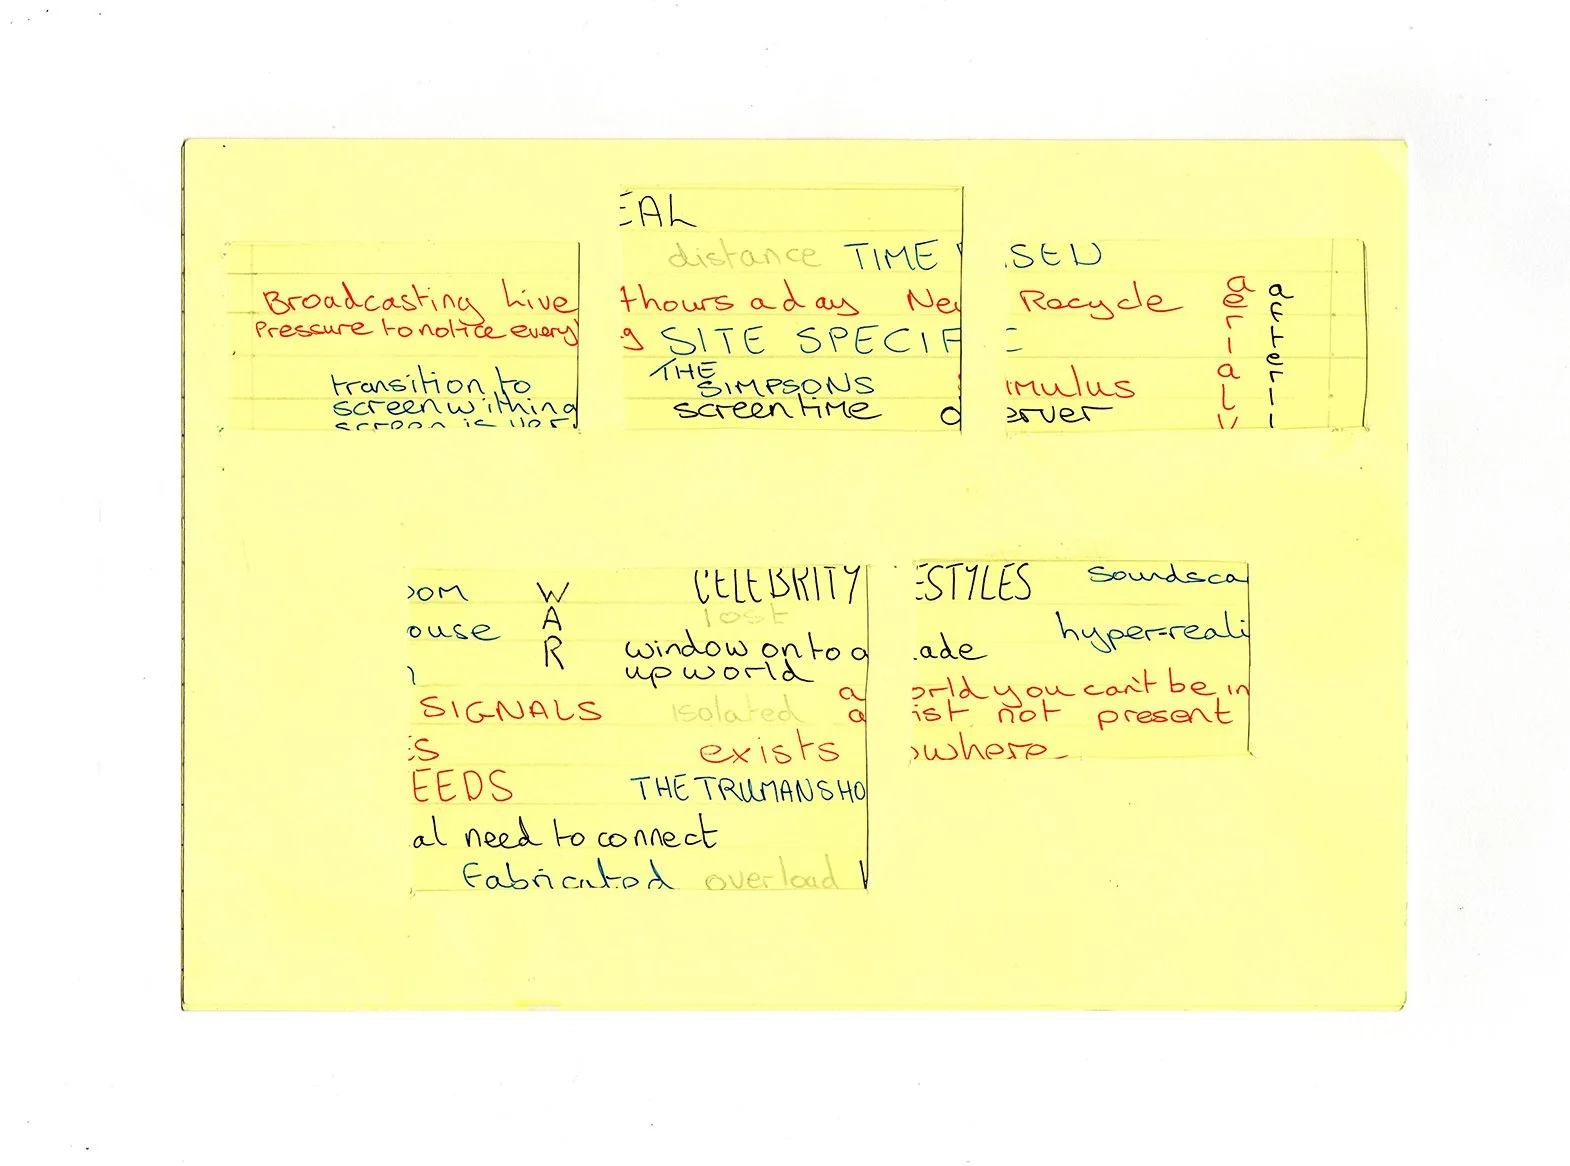 Broadcasting Live
Pressure to notice every
transition to
screen withing
EAL
distance TIME
hours a day Ne
g SITE SPECIF
THE
SIMPSONS
screen time
SED
Recycle
imulus
erver
aerial
oom
ouse
WAR
SIGNALS
ES
EEDS
al need to connect
Fabricated overload
CELEBRITY
lost
window on to a
up world
a
isolated a
exists
THE TRUMAN SHO
ESTYLES soundsca
hyper-reali
ade
orld you can't be in
ist not present
owhere